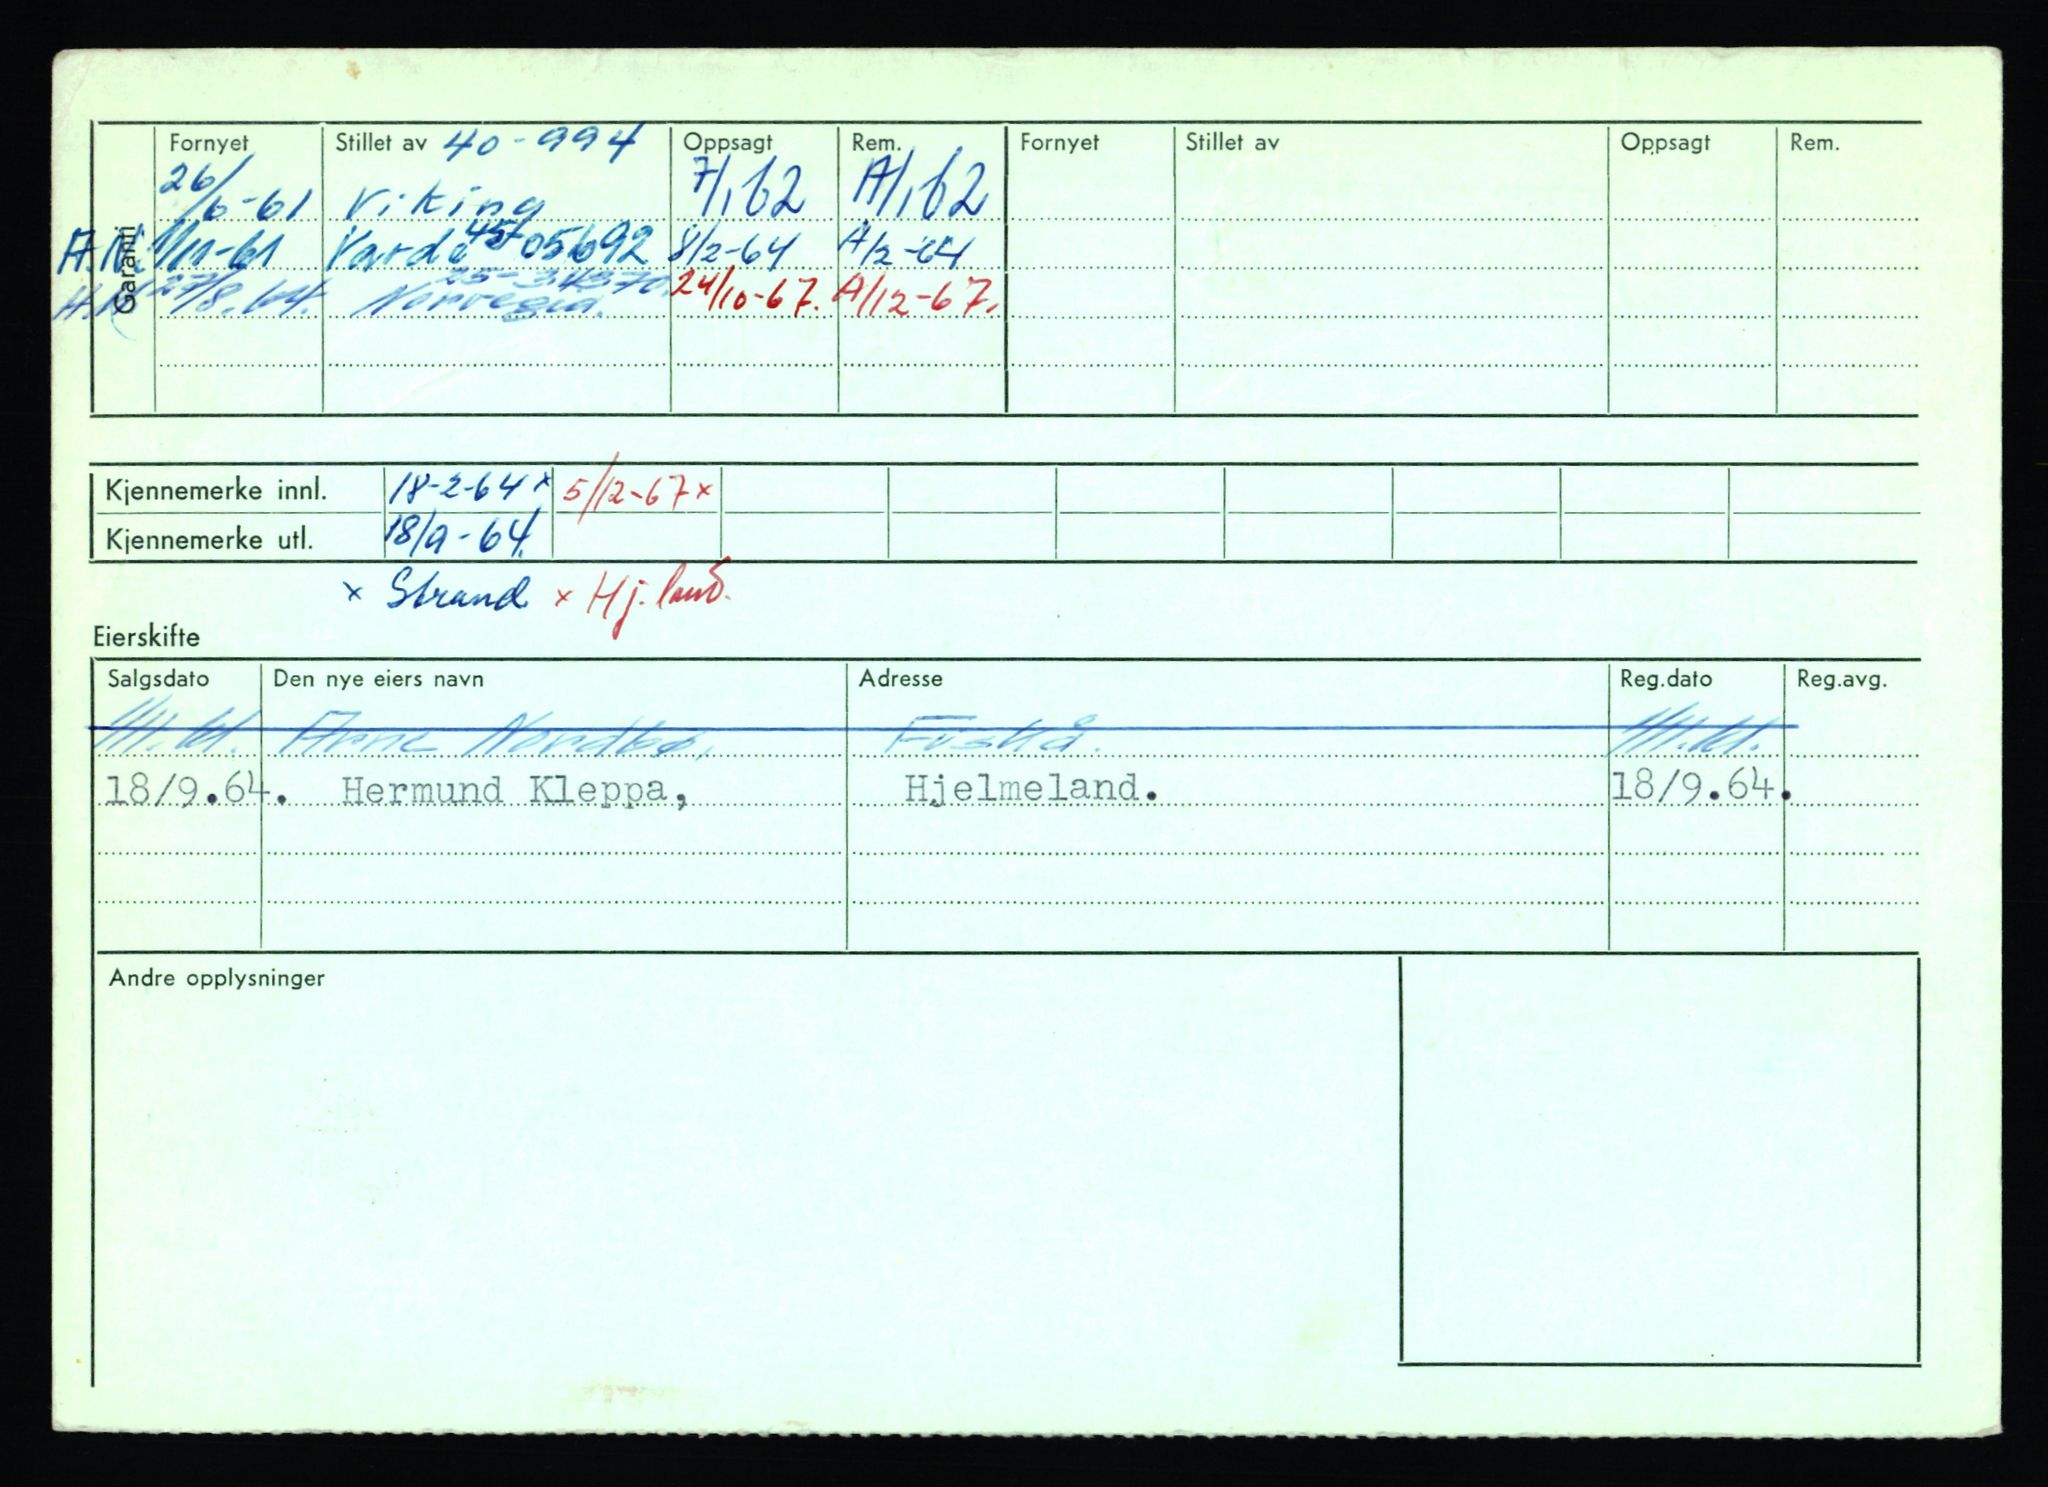 Fornyet Stillet av 40-994 Oppsagt Rem. Fornyet Stillet av Oppsagt Rem.
Garanti
26/6-61 Viking 7/1 62 A/1 62
A.N. 1/11-61 Varde 457 05692 8/2-64 A/2-64
27/8.64. Norvegia. 24/10-67. A/12-67.
Kjennemerke innl. 18-2-64 x 5/12-67 x
Kjennemerke utl. 18/9-64.
x Strand x Hj.land.
Eierskifte
Salgsdato Den nye eiers navn Adresse Reg.dato Reg.avg.
Arne Nordbø,
18/9.64. Hermund Kleppa, Hjelmeland. 18/9.64.
Andre opplysninger